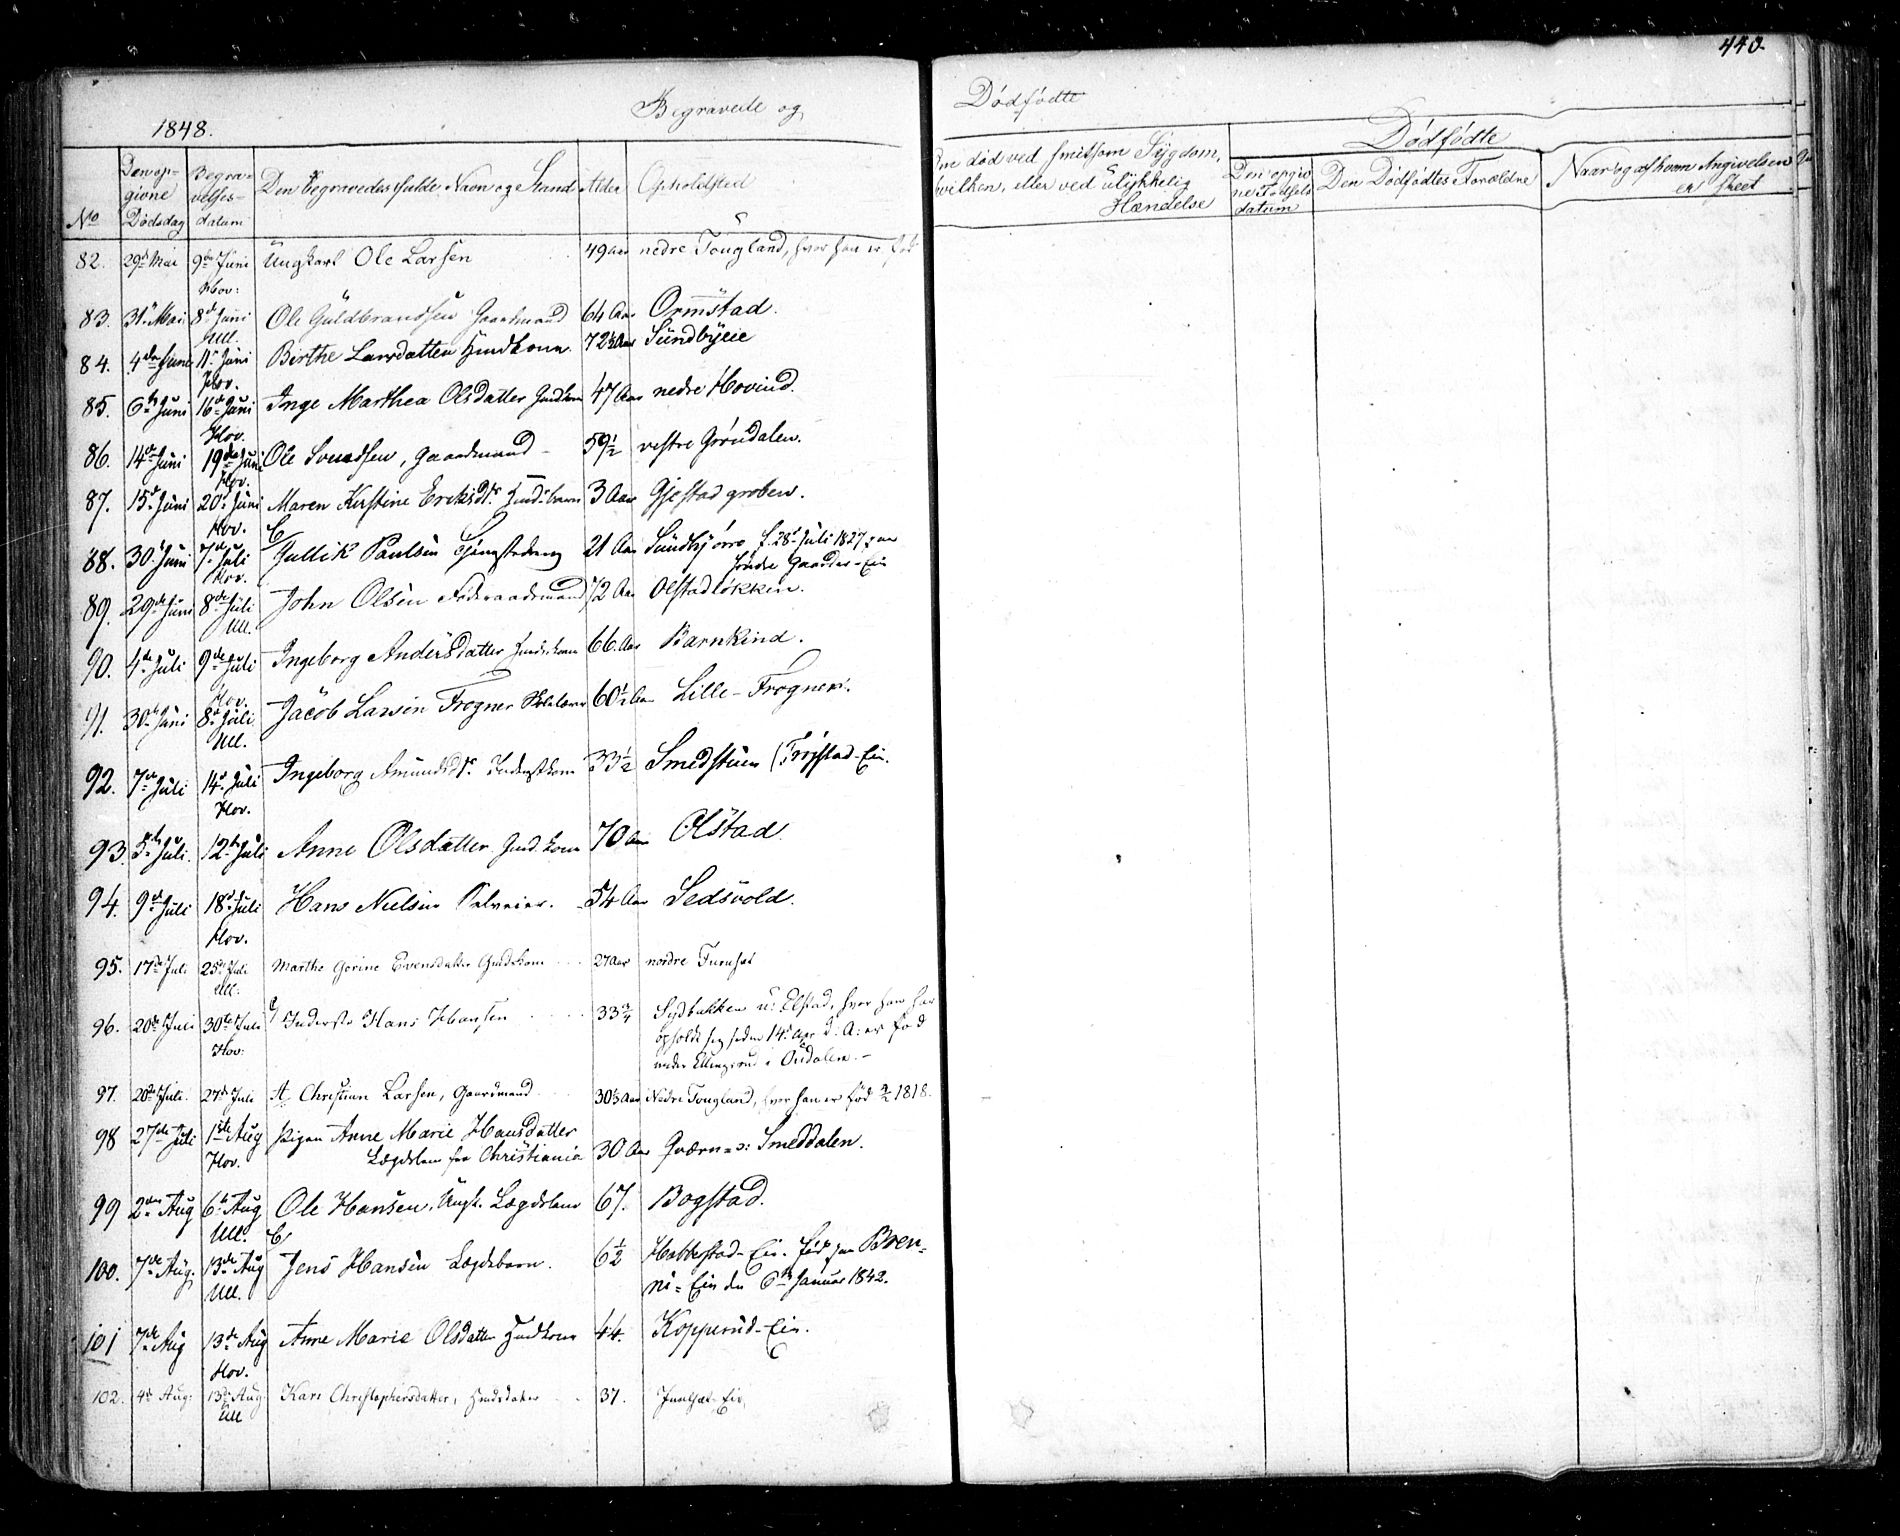 440.
Begravede og
Dødfødte
1848.
No
Den op-
givne
Dødsdag
Begra-
velses-
datum
Den Begravedes fulde Navn og Stand
Alder
Opholdsted
Om død ved smitsom Sygdom,
hvilken, eller ved ulykkelig
Hændelse
Dødfødte
Den opgiv
ne Fødsels
datum
Den Dødfødtes Forældre
Naar og af hvem Angivelsen
er skeet
82. 29de Mai 9de Juni Ungkarl Ole Larsen 49 aar nedre Tougland, hvor han er født
Hov:
83. 31te Mai 8de Juni Ole Guldbrandsen Gaardmand 64 Aar Ormstad.
Ull.
84. 4de Juni 11te Juni Birthe Larsdatter Huuskone 72½ Aar Sundbyeie
Hov.
85. 6te Juni 16de Juni Inge Marthea Olsdatter 47 Aar nedre Hovind.
Hov.
86. 14de Juni 19de Juni Ole Svendsen, Gaardmand 59½ vestre Grøndalen.
Hov.
87. 15de Juni 20de Juni Maren Kirstine Eriksdtr 3 Aar Gjestad groben.
Hov.
88. 30te Juni 7de Juli Gullik Paulsen 21 Aar Sundby f. 28de Juli 1827 paa
Hov. Gaarder-Eie
89. 29de Juni 8de Juli John Olsen Føderaadsmand 72 Aar Olstadløkken.
Ull.
90. 4de Juli 9de Juli Ingeborg Andersdatter 66 Aar Barnkind.
Hov.
91. 30te Juni 8de Juli Jacob Larsen Frogner Skolelærer 60½ Aar Lille-Frogner.
Ull.
92. 7de Juli 14de Juli Ingeborg Amundsdtr. Inderstkone 33½ Smedstuen (Frogstad-Eie.
Hov.
93. 5te Juli 12te Juli Anne Olsdatter 70 Aar Olstad.
94. 9de Juli 18de Juli Hans Nielsen 54 Aar Sedsvold.
Hov.
95. 17de Juli 25de Juli Marthe Gorine Evensdatter 27 Aar nordre Furuset
Ull.
96. 20de Juli 30te Juli Inderste Hans Johansen 33¾ Sydbakken u: Elstad, hvor han har
opholdt sig siden 14de Apr d: A: er fød
Hov: under Ellingsrud i Oudalen.
97. 20de Juli 27de Juli Christian Larsen, Gaardmand 30⅓ Aar Nedre Tougland, hvor han er født 1818.
98 27de Juli 1ste Aug Pigen Anne Marie Hansdatter
Hov. Lægdslem fra Christiania 30 Aar Qværn- Smeddalen.
99 2den Aug 6te Aug Ole Hansen, Ungk. Lægdslem 67. Bogstad.
Ull.
100. 7de Aug. 13de Aug Jens Hansen Lægdsbarn. 6½ Habbestad-Eie. fød paa Bren-
Ull. ni-Eie den 6te Januar 1842.
101 7de Aug 13de Aug Anne Marie Olsdatter Huuskone 44. Kopperud-Eie.
Hov.
102. 4de Aug: 13de Aug Kari Christophersdatter, 37.
Ull